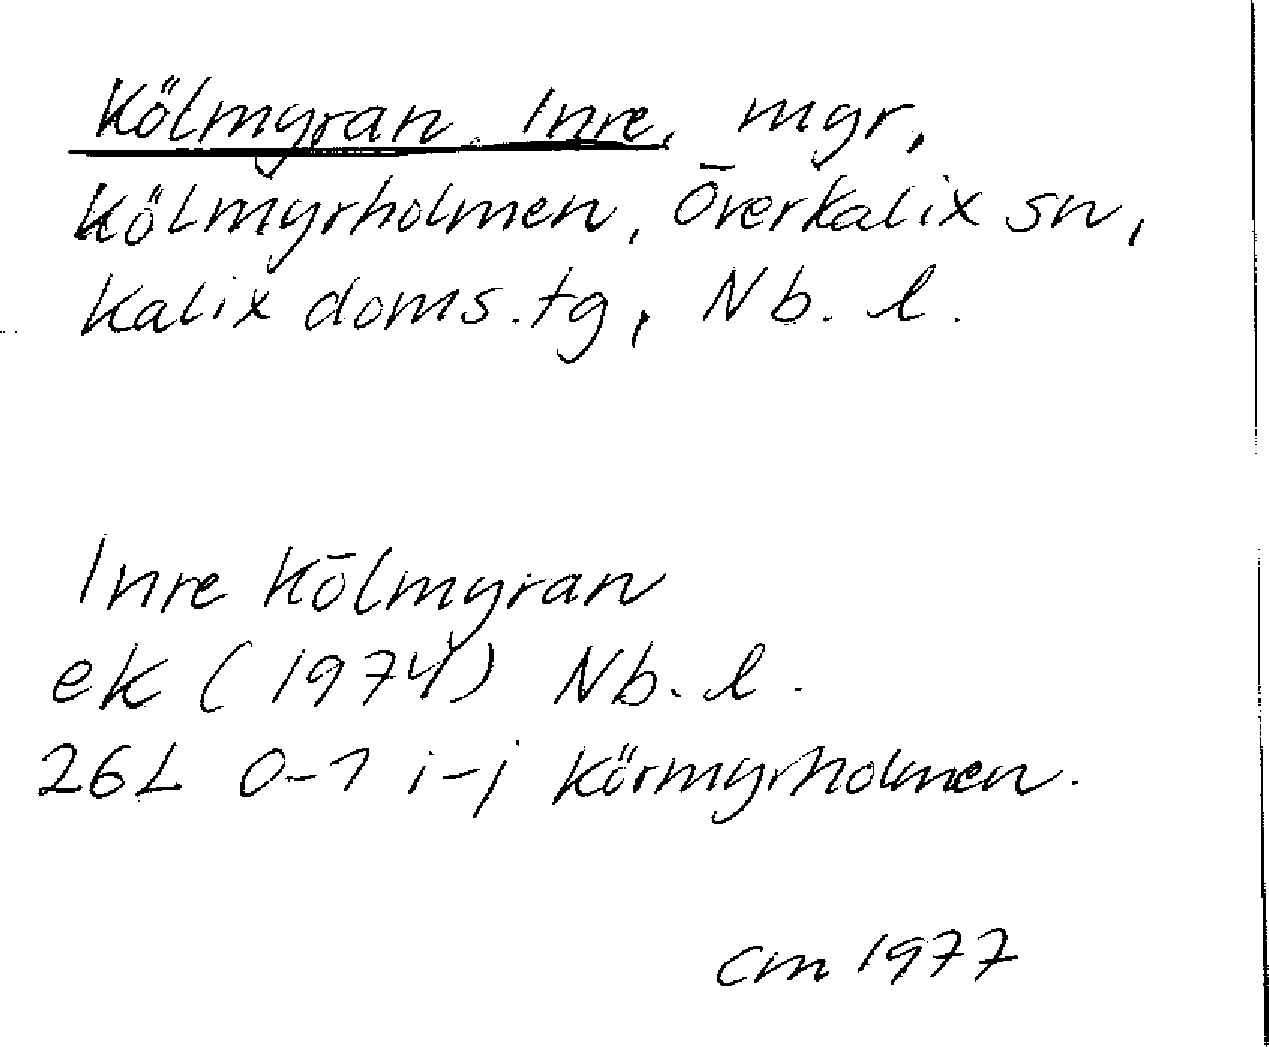 Kölmyran, Inre, myr,
Kölmyrholmen, Överkalix sn,
Kalix doms.tg, Nb. l.
Inre Kölmyran
ek (1974) Nb. l.
26L 0-1 i-j Körmyrholmen.
CM 1977